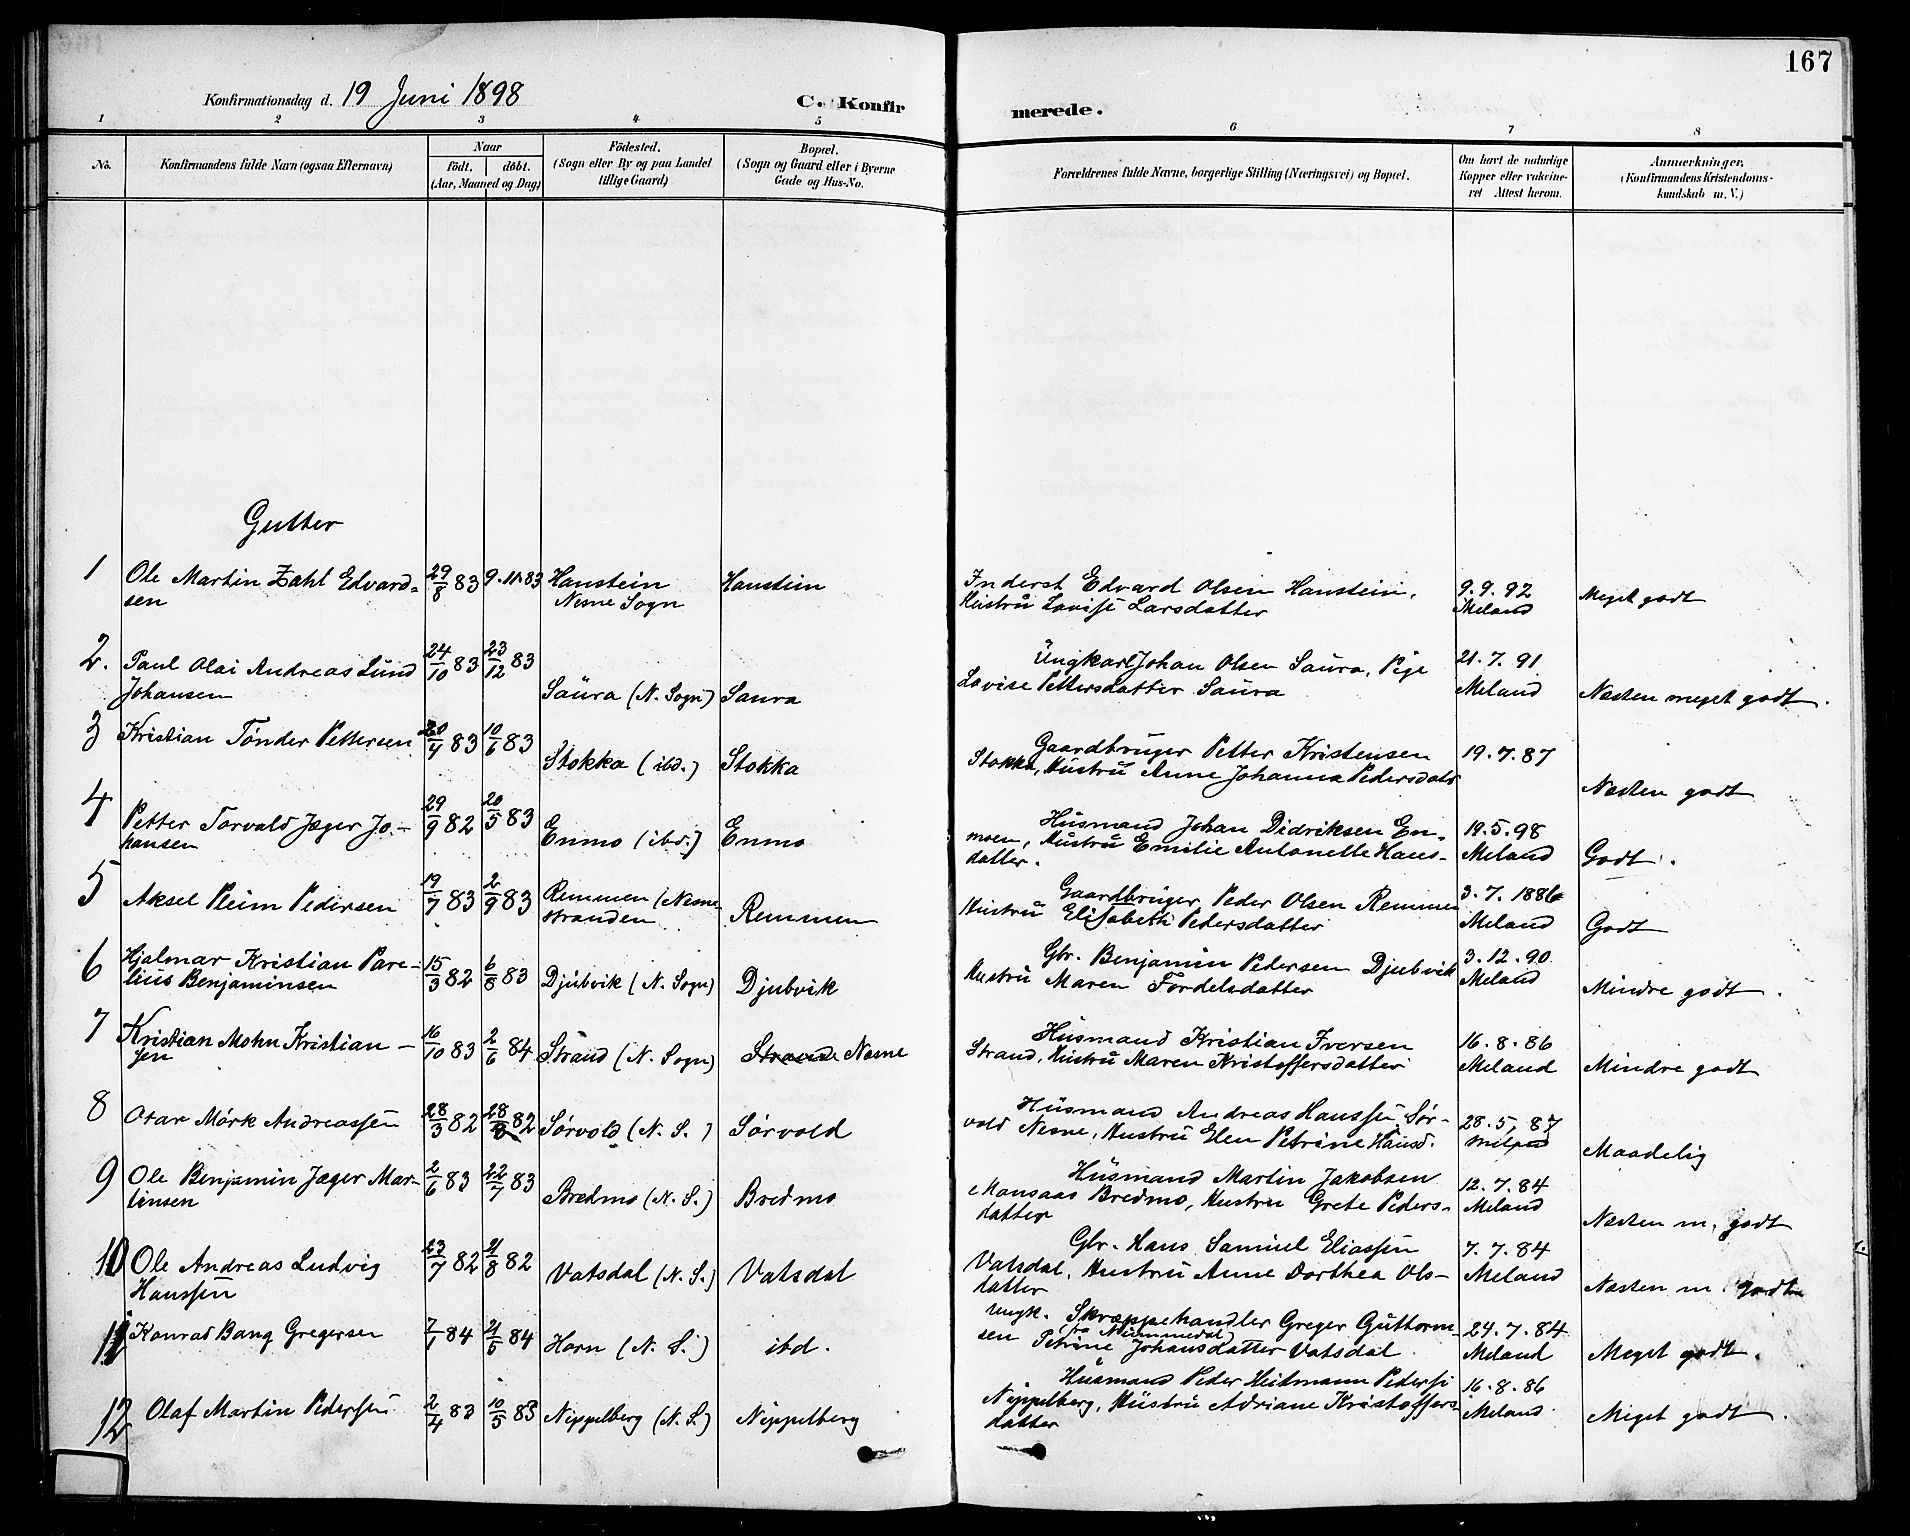 167
Konfirmationsdag d. 19 Juni 1898
C. Konfirmerede.
1 2 3 4 5 6 7 8
No.
Konfirmandens fulde Navn (ogsaa Efternavn)
Naar
födt. döbt.
(Aar, Maaned og Dag)
Födested.
(Sogn eller By og paa Landet
tillige Gaard)
Bopæl.
(Sogn og Gaard eller i Byerne
Gade og Hus-No.
Forældrenes fulde Navne, borgerlige Stilling (Næringsvei) og Bopæl.
Om havt de naturlige
Kopper eller vakcine-
ret Attest herom.
Anmærkninger.
(Konfirmandens Kristendoms-
kundskab m. V.)
Gutter
1 Ole Martin Zahl Edvard= 29/8 83 9.11.83 Hanstein Hanstein Inderst Edvard Olsen Hanstein, 9.9.92 Meget godt
sen Nesne Sogn Hustru Lovise Larsdatter Meland
2. Paul Olai Andreas Lund 24/10 83 23/12 83 Ungkarl Johan Olsen Saura, Pige 21.7.91
Johansen Saura (N. Sogn) Saura Lovise Pettersdatter Saura Meland Næsten meget godt.
3 Kristian Tønder Pettersen 20/4 83 10/6 83 Gaardbruger Petter Kristensen 19.7.87
Stokka (ibd.) Stokka Stokka, Hustru Anne Johanna Pedersdatr Næsten godt
4 Petter Torvald Jæger Jo- 29/9 82 20/5 83 Husmand Johan Didriksen En- 19.5.98
hansen Enmo (ibd.) Enmo moen, Hustru Emilie Antonette Hans- Meland Godt.
datter.
5 Aksel Pleim Pedersen 19/7 83 2/9 83 Remmen (Nesne- Gaardbruger Peder Olsen Remmen 3.7.1886
stranden Remmen Hustru Elisabeth Pedersdatter Meland Godt
6 Hjalmar Kristian Pare- 15/3 82 6/8 83 Gbr. Benjamin Pedersen Djubvik 3.12.90
lius Benjaminsen Djubvik (N. Sogn) Djubvik Hustru Maren Fordelsdatter Meland Mindre godt.
7 Kristian Mohn Kristian- 16/10 83 2/6 84 Husmand Kristian Iversen 16.8.86
sen Strand (N. Sogn) Strand Nesne Strand, Hustru Maren Kristoffersdatter Meland Mindre godt
8 Otar Mørk Andreassen 28/3 82 28/8 82 Sørvold (N. S.) Sørvold Husmand Andreas Hanssen Sør- 28.5.87
vold Nesne, Hustru Elen Petrine Hansd. Meland Maadelig
9 Ole Benjamin Jæger Mar- 2/6 83 22/7 83 Husmand Martin Jakobsen 12.7.84
tinsen Bredmo (N. S.) Bredmo Mansaas Bredmo, Hustru Grete Peders- Meland
datter Næsten m. godt
10 Ole Andreas Ludvig 23/7 82 21/8 82 Gbr. Hans Samuel Eliassen 7.7.84
Hanssen Vatsdal (N. S.) Vatsdal Vatsdal, Hustru Anne Dorthea Ols- Meland Næsten m. godt
datter
11 Konrad Bang Gregersen 7/1 84 21/5 84 Ungk. Skræppehandler Greger Guttorm- 24.7.84
Horn (N. S.) ibd. sen (fra Nummedal) Petrine Johansdatter Vatsdal. Meland Meget godt.
12 Olaf Martin Pedersen 2/4 83 10/5 83 Husmand Peder Heitmann Peders. 16.8.86
Nippelberg (N. S.) Nippelberg Nippelberg, Hustru Adriane Kristoffers- Meland Meget godt.
datter